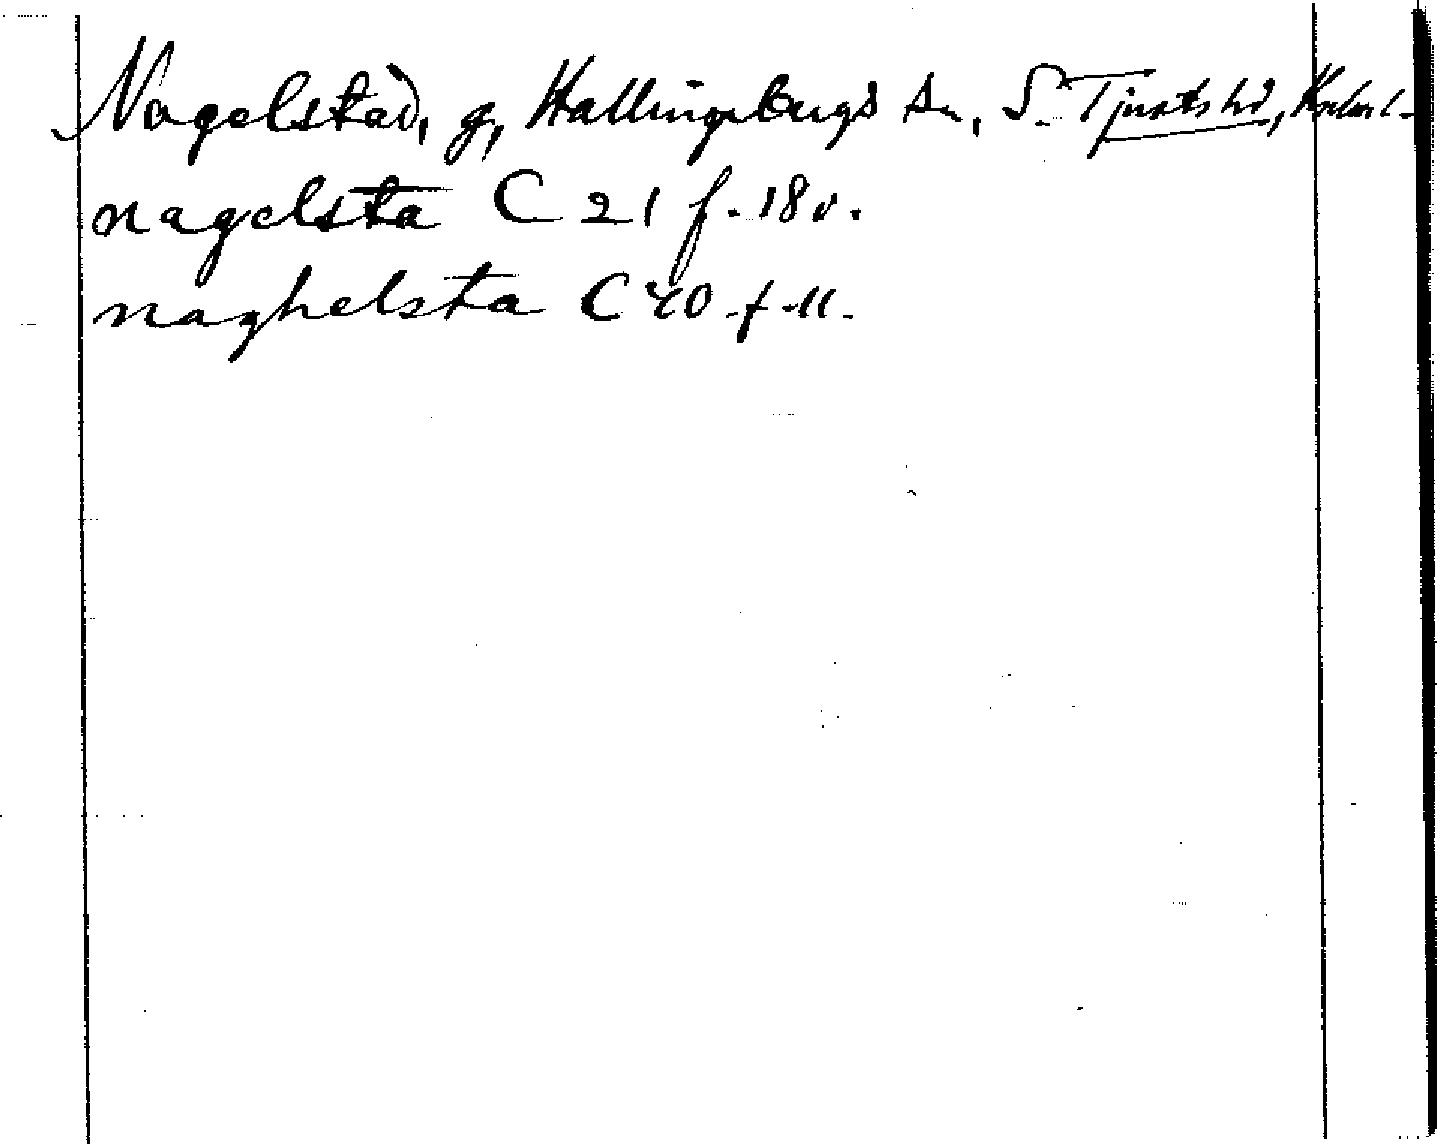 Nagelstad, g, Hallingebergs sn, S. Tjusts hd,
nagelsta C 21 f. 18 v.
naghelsta C 40 f 11.